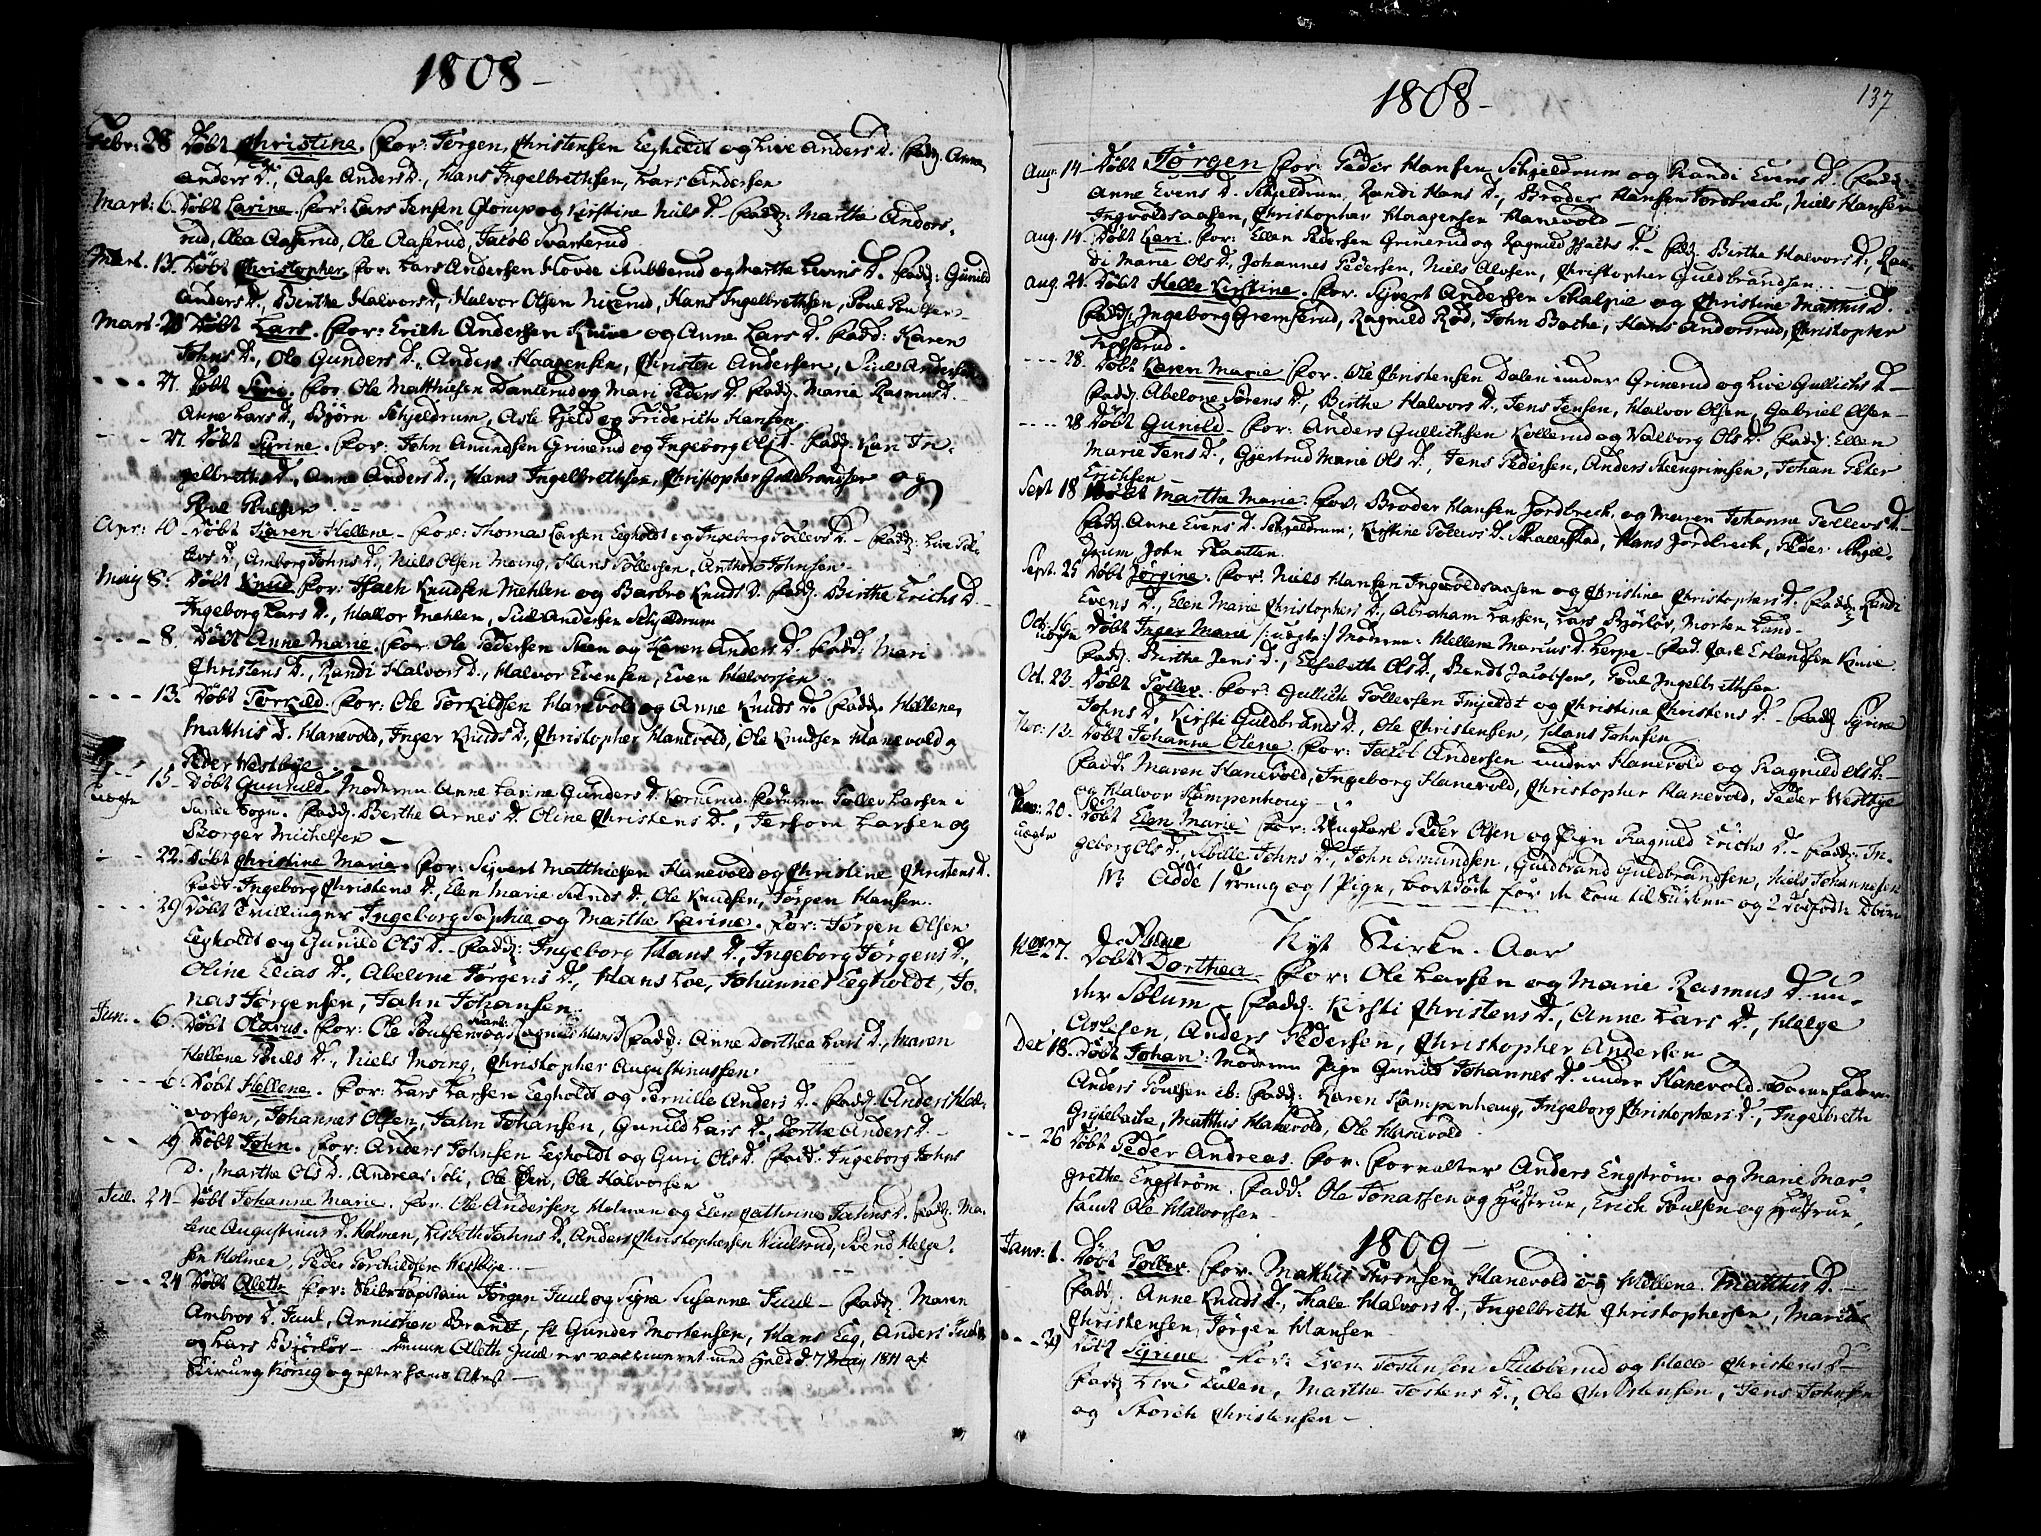 1808 –
Febr: 28 Døbt Christine. For: Jørgen Christensen Eegholdt og Live Anders D. Fadd. Anne
Anders D., Aase Anders D., Hans Ingelbrethsen, Lars Andersen
Mart: 6. Døbt Larine. For: Lars Jensen Glorup og Kirstine Nils D. – Fadd: Marthe Andors-
rud, Olea Aaserud, Ole Aaserud, Jacob Svarterud
Mart. 13. Døbt Christopher For: Lars Andersen Hovde Stubberud og Marthe Levins D. Fadd: Gunild
Anders D., Birthe Halvors D., Halvor Olsen Nixerud, Hans Ingelbrethsen, Poul Poulsen –
Mart. 20 Døbt Lars. For: Erich Andersen Knive og Anne Lars D. Fadd: Karen
Johns D., Ole Gunders D., Anders Haagensen, Christen Andersen, Siul Andersen
- - - 27. Døbt Siri. For. Ole Matthiesen Danserud og Mari Peders D. Fadd. Marie Rasmus D.
Anne Lars D., Bjørn Schjeldrum, Asle Fjeld og Friderich Hansen
- - - 27. Døbt Syrine. For. John Amundsen Grinerud og Ingeborg Ols D. Fadd. Kari In-
gelbreths D., Anne Anders D., Hans Ingelbrethsen, Christopher Guldbrandsen og
Poul Poulsen
Apr: 10 – Døbt Karen Hellene – For: Thomas Larsen Eegholdt og Ingeborg Tollevs D. – Fadd: Live Tol-
levs D. Amborg Johns D., Niels Olsen Moing, Hans Tollevsen, Anthon Johnsen –
Maij 8. Døbt Knud For: Isach Knudsen Mehlen og Barbro Knuds D. Fadd. Birthe Erichs D. –
Ingeborg Lars D., Hallor Mehlen, Siul Andersen Schjeldrum
- - - 8. Døbt Anne Marie. For. Ole Pedersen Steen og Karen Anders D. Fadd: Mari
Christens D., Randi Halvors D., Halvor Evensen, Even Halvorsen
- - - 13. Døbt Torkild. For: Ole Torkildsen Hanevold og Anne Knuds D. Fadd. Hellene
Matthis D. Hanevold, Inger Knuds D., Christopher Hanevold, Ole Knudsen Hanevold og
Peder Westbye
15 – Døbt Gunnild. Moderen Anne Larine Gunders D. Kornerud. Faderen Tollev Larsen i
uægte Sande Sogn. Fadd. Berthe Arnes D. Oline Christens D., Jersom Larsen og
Borger Michelsen –
- - 22. Døbt Christine Marie. For: Syvert Matthiesen Hanevold og Christine Christens D.
Fadd. Ingeborg Christens D., Elen Marie Svends D., Ole Knudsen, Jørgen Hansen.
- - - 29 Døbt Tvillinger Ingeborg Sophie og Marthe Karine. For: Jørgen Olsen
Eegholdt og Gunild Ols D. – Fadd: Ingeborg Hans D., Ingeborg Jørgens D.,
Oline Elias D., Abelone Jørgens D., Hans Loe, Johannes Eegholdt, Jo-
nas Jørgensen, Jahn Johansen.
Jun. - 6. Døbt Olavus. For: Ole Poulsen og Ragnild Hans D Fadd: Anne Dorthea Lars D., Maren
Hellene Pouls D., Niels Moing, Christopher Augustinussen
- - - 6. Døbt Hellene. For: Lars Larsen Eegholdt og Pernille Anders D. – Fadd: Anders Hal-
vorsen, Johannes Olsen, Jahn Johansen, Gunild Lars D., Dorthe Anders D. –
- - 19 Døbt John. For: Anders Johnsen Eegholdt og Guri Ols D. Fadd: Ingeborg Johns
D., Marthe Ols D. Andreas Soli, Ole Øen, Ole Halvorsen
Jul. 24 – Døbt Johanne Marie. For: Ole Andersen Holmen og Elen Cathrine Jahns D. Fadd: Ma-
lene Augustinus D. Holmen, Lisbeth Jahns D., Anders Christophersen Hiulsrud, Svend Helge-
sen Holmen, Peder Torchildsen Westbye. –
- - 24 Døbt Aleth. For: Seilerkapitain Jørgen Juul og Signe Susanne Juul – Fadd. Maren
Ambros D. Juul, Annichen Brandt, Hr Gunder Mortensen, Hans Eeg, Anders Juul
og Lars Bjørløv – Denne Aleth Juul er vaccineret med Held d. 7 May 1811 af
Chirurg König og efter hans Attest –
137
1808 –
Aug: 14 – Døbt Jørgen For: Peder Hansen Schjeldrum og Randi Evens D. Fadd:
Anne Evens D. Schjeldrum, Randi Hans D., Broder Hansen Jordbrech, Niels Hansen
Ingvoldsaasen, Christopher Haagensen Hanevold –
Aug. 14. Døbt Kari. For: Ellen Pedersen Grinerud og Ragnild Isachs D. – Fadd. Birthe Halvors D., Ran-
di Marie Ols D., Johannes Pedersen, Niels Alvsen, Christopher Guldbrandsen. –
Aug. 21. Døbt Helle Kirstine. For. Syvert Andersen Schalpie og Christine Matthis D.
Fadd. Ingeborg Gremserud, Ragnild Rød, John Bache, Hans Andorsrud, Christopher
Trolserud.
- - - - 28. Døbt Karen Marie For. Ole Christensen Dalen under Grinerud og Live Gullichs D –
Fadd. Abelone Sørens D., Birthe Halvors D., Jens Jensen, Halvor Olsen, Gabriel Olsen –
- - - - 28 Døbt Gunild – For: Anders Gullichsen Kollerud og Valborg Ols D. Fadd: Ellen
Marie Jens D., Gjertrud Marie Ols D., Jens Pedersen, Anders Steengrimsen, Johan Peter
Erichsen –
Sept 18 Døbt Marthe Marie. For: Broder Hansen Jordbrech og Maren Johanne Tollevs D. –
Fadd. Anne Evens D. Schjeldrum, Kirstine Tollevs D. Skallestad, Hans Jordbrech, Peder Schjel-
drum John Plaatten
Sept. 25 Døbt Jørgine. For: Niels Hansen Ingevoldsaasen og Christine Christophers D. Fadd. Randi
Evens D., Elen Marie Christophers D., Abraham Larsen, Lars Bjørløv, Morten Lund –
Oct. 16. Døbt Inger Marie /: uægte :/ Moderen: Hellene Marius D. Herpe – Fad. Joel Erlandsen Knive
uægte Fadd. Birthe Jens D., Elsebeth Ols D., Bendt Jacobsen, Poul Ingelbrethsen
Oct. 23. Døbt Tollev. For: Gullich Tollevsen Imjeldt og Christine Christens D. – Fadd. Syrine
Johns D., Kirsti Guldbrands D., Ole Christensen, Hans Johnsen
Nov. 13. Døbt Johanne Olene. For: Jacob Andersen under Hanevold og Ragnild Ols D. –
Fadd. Maren Hanevold, Ingeborg Hanevold, Christopher Hanevold, Peder Westbye
og Halvor Kampenhoug –
Nov: 20. Døbt Elen Marie For: Ungkarl Peder Olsen og Pigen Ragnild Erichs D. – Fadd: In-
uægte geborg Ols D., Sibille Johns D., John Amundsen, Guldbrand Guldbrandsen, Niels Johannesen
Nyt Kirke-Aar
Nov 27. Døbt Dorthea – For: Ole Larsen og Marie Rasmus D. un-
der Solum – Fadd: Kirsti Christens D., Anne Lars D., Helge
Aslesen, Anders Pedersen, Christopher Andersen
Dec 18. Døbt Johan: Moderen Pige Gunild Johannes D. under Hanevold. Barnefader
Anders Poulsen ib: Fadd: Karen Kampenhaug, Ingeborg Christophers D., Ingelbreth
Grinebache, Matthis Hanevold, Ole Hanevold
- - 26 Døbt Peder Andreas. For: Forvalter Anders Engstrøm og Marie Mar-
grethe Engstrøm. Fadd: Ole Jonassen og Hustrue, Erich Poulsen og Hustrue,
samt Ole Halvorsen –
1809 –
Janv: 1. Døbt Tollev For. Matthis Thronsen Hanevold og Hellene Matthis D. –
Fadd. Anne Knuds D., Thale Halvors D., Ingelbreth Christophersen, Marius
Christensen, Jørgen Hansen –
- - - 29 Døbt Syrine For: Even Tostensen Stubberud og Helle Christens D
Fadd Live Lulen, Marthe Tostens D., Ole Christensen, Jens Johnsen
og Storch Christensen –